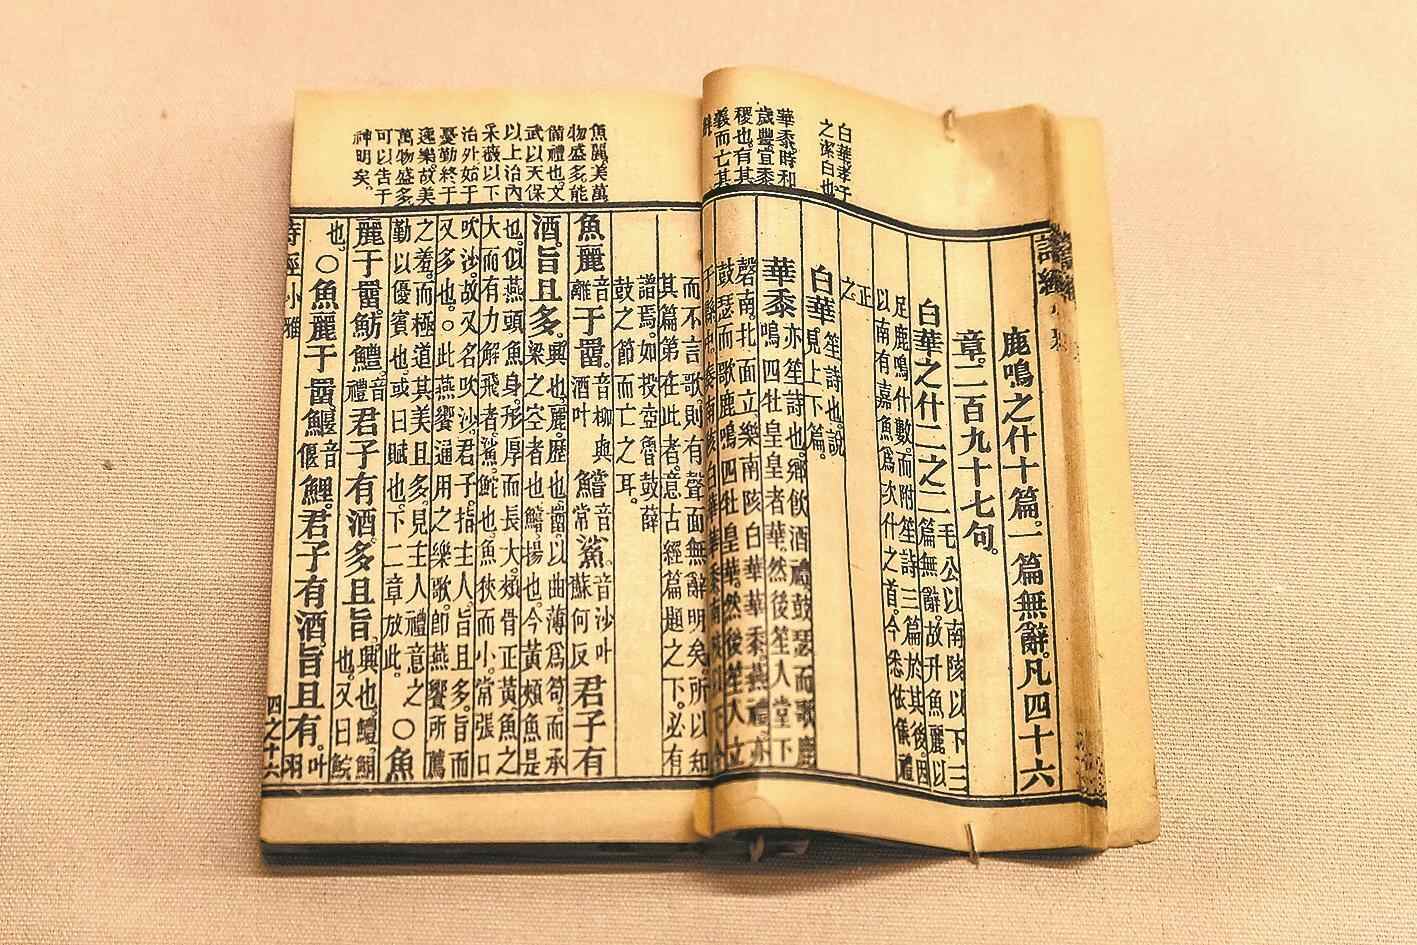 白華孝子
之潔白也
華黍時利
歲豐宜黍
稷也有其
義而亡其
鹿鳴之什十篇。一篇無辭。凡四十六
章。二百九十七句。
白華之什二之二
毛公以南陔以下三
篇無辭。故升魚麗以
足鹿鳴什數。而附笙詩三篇於其後。因
以南有嘉魚爲次什之首。今悉依儀禮
正
之。
白華
笙詩也。說
見上下篇。
華黍
亦笙詩也。鄉飲酒禮。鼓瑟而歌鹿
鳴四牡皇皇者華。然後笙入堂下
磬南。北面立。樂南陔白華華黍。燕禮。亦
鼓瑟而歌鹿鳴四牡皇華。然後笙入立
而不言歌。則有聲而無辭明矣。所以知
其篇第在此者。意古經篇題之下。必有
譜焉。如投壺魯鼓薛
鼓之節而亡之耳。
魚麗美萬
物盛多能
備禮也。文
武以天保
以上治內
采薇以下
治外始于
憂勤終于
逸樂。故美
萬物盛多
可以告于
神明矣。
魚麗音離于罶。音柳與酒叶鱨音常鯊。音沙叶蘇何反君子有
酒。旨且多。
興也。麗。歷也。罶。以曲薄爲笱。而承
梁之空者也。鱨。揚也。今黃頰魚是
也。似燕頭魚身。形厚而長大。頰骨正黃。魚之
大而有力解飛者。鯊。鮀也。魚狹而小。常張口
吹沙。故又名吹沙。君子。指主人。旨且多。旨而
又多也。○此燕饗通用之樂歌。即燕饗所薦
之羞。而極道其美且多。見主人禮意之
勤。以優賓也。或曰賦也。下二章放此。○魚
麗于罶。魴鱧。音禮君子有酒。多且旨。興也。鱧。鮦
也。又曰鯇
也。○魚麗于罶。鰋音偃鯉。君子有酒。旨且有。叶羽
詩經小雅 四之十六